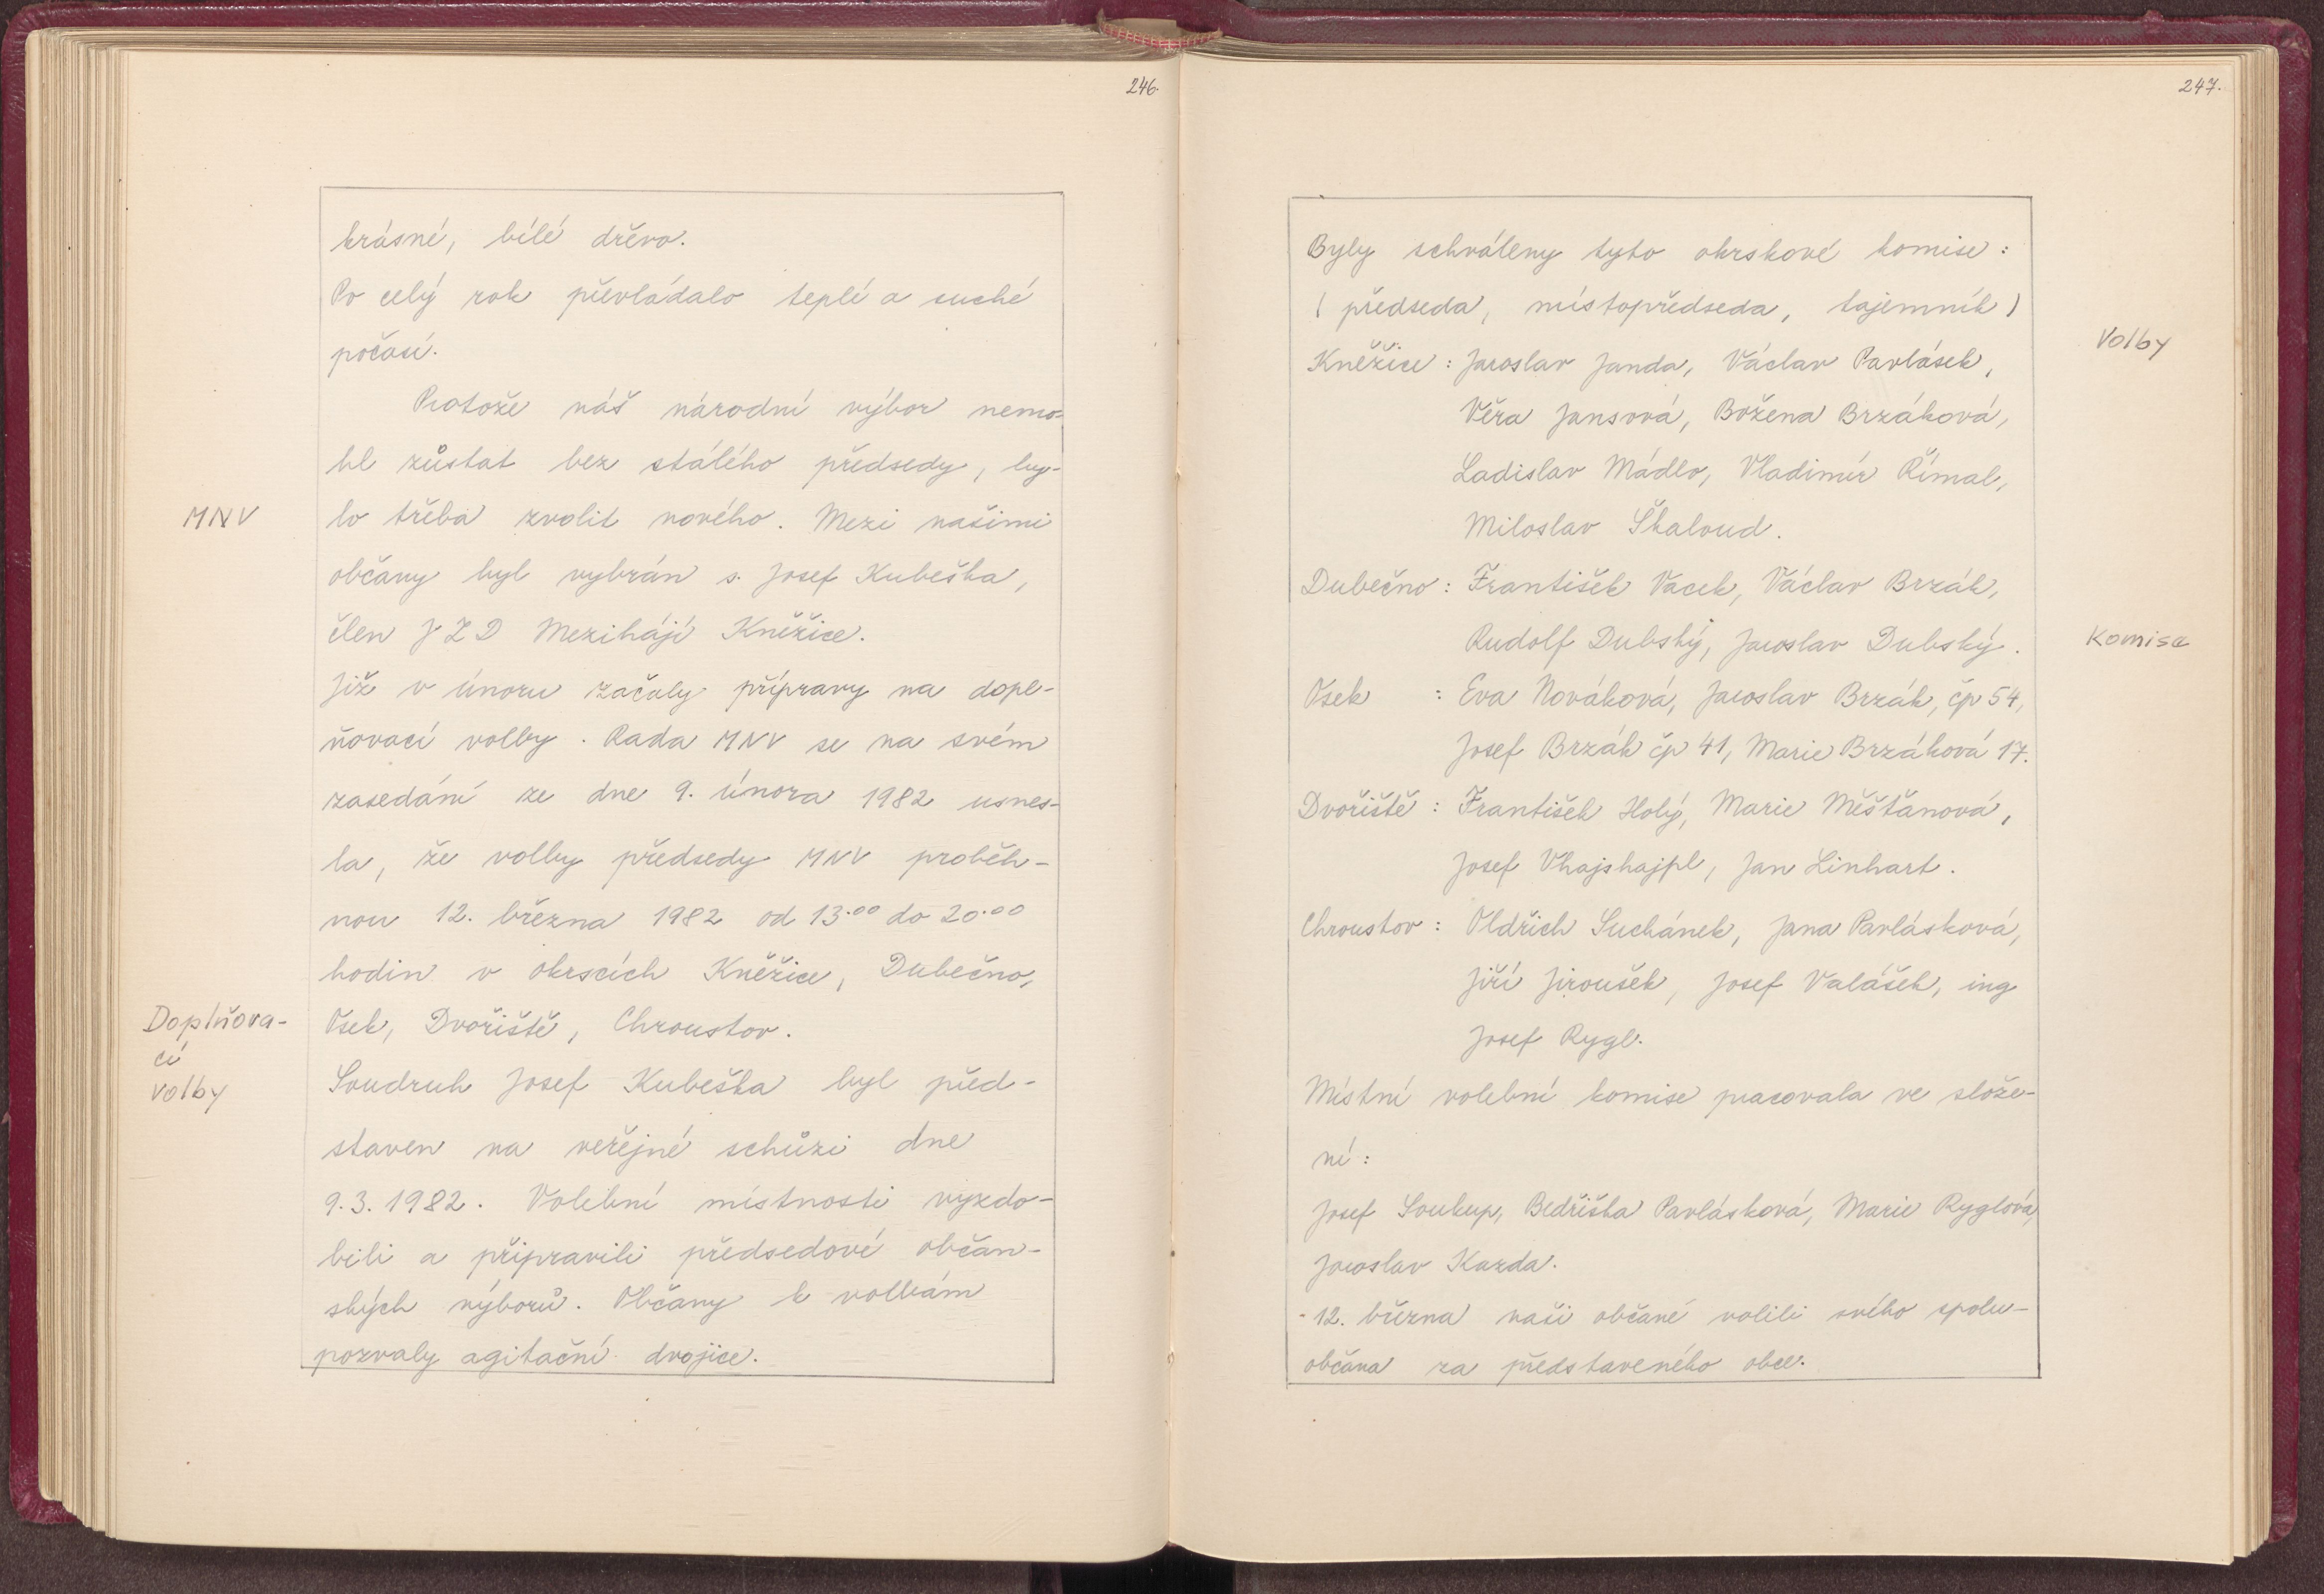 246.
krásné, bílé dřevo.
Po celý rok převládalo teplé a suché
počasí.
Protože náš národní výbor nemo-
hl zůstat bez stálého předsedy, by-
MNV
lo třeba zvolit nového. Mezi našimi
občany byl vybrán s. Josef Kubeška,
člen JZD Mezihájí Kněžice.
Již v únoru začaly přípravy na dopl-
ňovací volby. Rada MNV se na svém
zasedání ze dne 9. února 1982 usnes-
la, že volby předsedy MNV proběh-
nou 12. března 1982 od 13.00 do 20.00
hodin v okrscích Kněžice, Dubečno,
Doplňova-
cí
volby
Osek, Dvořiště, Chroustov.
Soudruh Josef Kubeška byl před-
staven na veřejné schůzi dne
9.3.1982. Volební místnosti vyzdo-
bili a připravili předsedové občan-
ských výborů. Občany k volbám
pozvaly agitační dvojice.
247.
Byly schváleny tyto okrskové komise:
(předseda, místopředseda, tajemník)
Volby
Kněžice: Jaroslav Janda, Václav Pavlásek,
Věra Jansová, Božena Brzáková,
Ladislav Mádlo, Vladimír Římal,
Miloslav Škaloud.
Dubečno: František Vacek, Václav Brzák,
Rudolf Dubský, Jaroslav Dubský.
Komise
Osek : Eva Nováková, Jaroslav Brzák, čp 54,
Josef Brzák čp 41, Marie Brzáková 17.
Dvořiště: František Holý, Marie Měšťanová,
Josef Vhajshajpl, Jan Linhart.
Chroustov: Oldřich Suchánek, Jana Pavlásková,
Jiří Jiroušek, Josef Valášek, ing
Josef Rygl.
Místní volební komise pracovala ve slože-
ní:
Josef Soukup, Bedřiška Pavlásková, Marie Ryglová,
Jaroslav Kazda.
-12. března naši občané volili svého spolu-
občana za představeného obce.